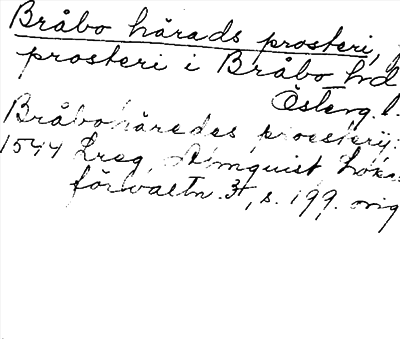 Bråbo härads prosteri,
prosteri i Bråbo hd
Österg. l.
Bråbohäredes proestery:
1544 Lreg, Almquist, Loka
förvaltn. 3, s. 199. orig